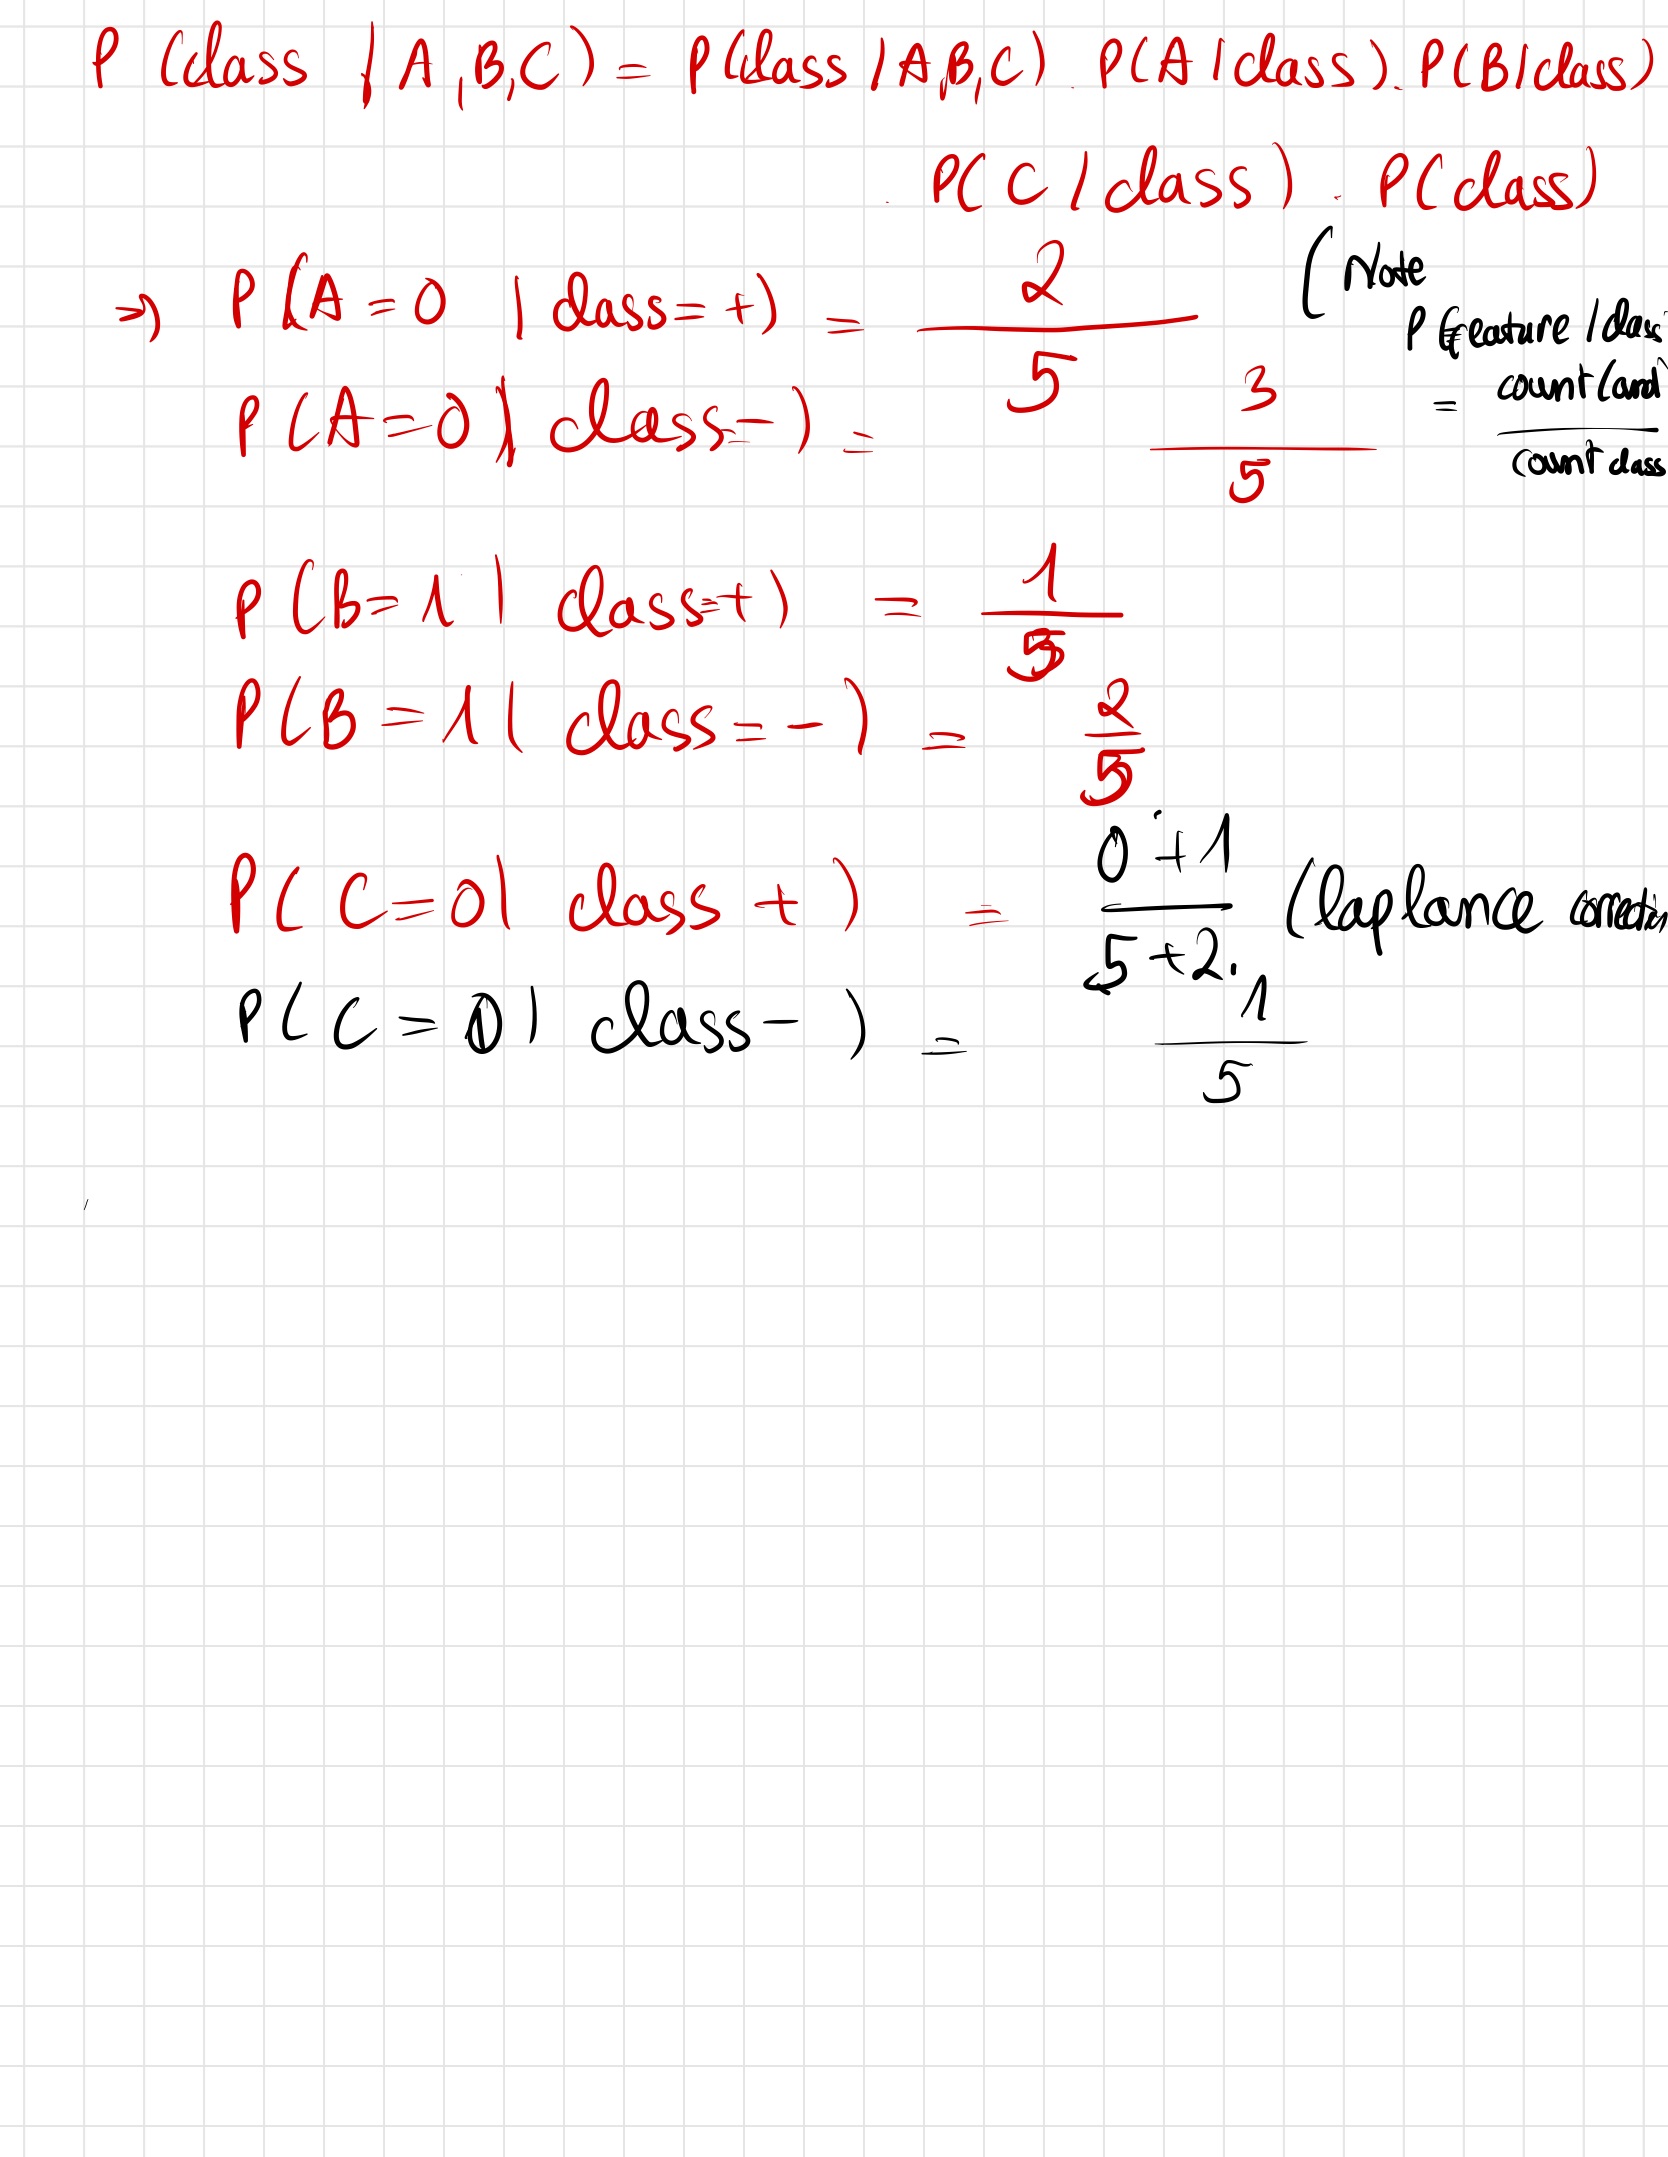 P (class | A,B,C) = P(class | A,B,C) . P(A | class) . P(B | class)
. P(C | class) . P(class)
⇒ P(A=0 | class=+) = 2/5
(Note
P(feature | class
= count(and / count class
P(A=0 | class=-) = 3/5
P(B=1 | class=+) = 1/5
P(B=1 | class=-) = 2/5
P(C=0 | class +) = 0+1 / 5+2. (laplance correction
P(C=0 | class -) = 1/5